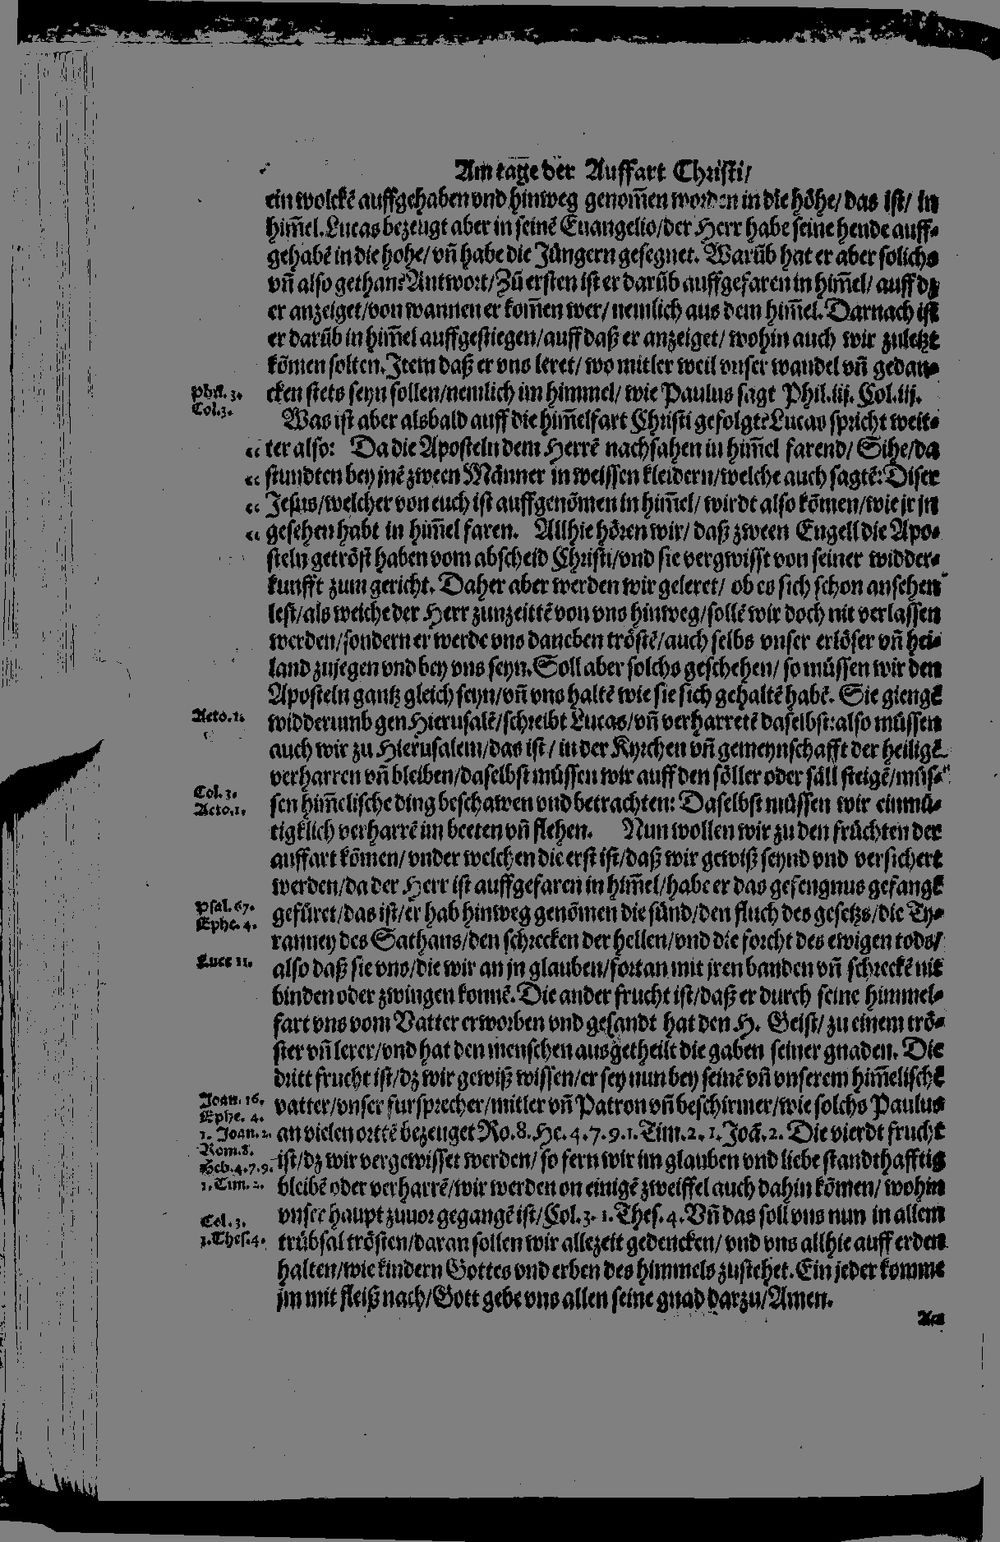 Am tage der Auffart Christi/
ein wolckẽ auffgehaben vnd hinweg genom̃en worden in die höhe/ das ist/ in
him̃el. Lucas bezeugt aber in seinẽ Euangelio/ der Herr habe seine hende auff-
gehabẽ in die hohe/ vñ habe die Jüngern gesegnet. Warũb hat er aber solichs
vñ also gethan? Antwort/ Zũ ersten ist er darũb auffgefaren in him̃el/ auff dz
er anzeiget/ von wannen er kom̃en wer/ nemlich aus dem him̃el. Darnach ist
er darũb in him̃el auffgestiegen/ auff daß er anzeiget/ wohin auch wir zuletzt
kõmen solten. Item daß er vns leret/ wo mitler weil vnser wandel vñ gedan-
Phil. 3. cken stets seyn sollen/ nemlich im himmel/ wie Paulus sagt Phil. iij. Col. iij.
Col. 3.
Was ist aber alsbald auff die him̃elfart Christi gefolgt? Lucas spricht weit-
ter also: Da die Aposteln dem Herrẽ nachsahen in him̃el farend/ Sihe/ da
stundten bey jnẽ zween Männer in weissen kleidern/ welche auch sagtẽ: Diser
Jesus/ welcher von euch ist auffgenõmen in him̃el/ wirdt also kõmen/ wie jr jn
gesehen habt in him̃el faren. Allhie hören wir/ daß zween Engell die Apo-
steln getröst haben vom abscheid Christi/ vnd sie vergwisst von seiner widder-
kunfft zum gericht. Daher aber werden wir geleret/ ob es sich schon ansehen
lest/ als weiche der Herr zunzeittẽ von vns hinweg/ sollẽ wir doch nit verlassen
werden/ sondern er werde vns daneben tröstẽ/ auch selbs vnser erlöser vñ hei-
land zujegen vnd bey vns seyn. Soll aber solchs geschehen/ so müssen wir den
Aposteln gantz gleich seyn/ vñ vns haltẽ wie sie sich gehaltẽ habẽ. Sie giengẽ
Acto. 1. widderumb gen Hierusalẽ/ schreibt Lucas/ vñ verharretẽ daselbst: also müssen
auch wir zu Hierusalem/ das ist/ in der Kyrchen vñ gemeynschafft der heiligẽ
verharren vñ bleiben/ daselbst müssen wir auff den söller oder säll steigẽ/ müs-
Col. 3. sen him̃elische ding beschawen vnd betrachten: Daselbst müssen wir einmü-
Acto. 1. tigklich verharrẽ im beeten vñ flehen. Nun wollen wir zu den früchten der
auffart kõmen/ vnder welchen die erst ist/ daß wir gewiß seynd vnd versichert
werden/ da der Herr ist auffgefaren in him̃el/ habe er das gefengnus gefangẽ
Psal. 67. gefüret/ das ist/ er hab hinweg genõmen die sünd/ den fluch des gesetzs/ die Ty-
Ephe. 4. ranney des Sathans/ den schrecken der hellen/ vnd die forcht des ewigen tods/
Luce 11. also daß sie vns/ die wir an jn glauben/ fortan mit jren banden vñ schreckẽ nit
binden oder zwingen konnẽ. Die ander frucht ist/ daß er durch seine himmel-
fart vns vom Vatter erworben vnd gesandt hat den H. Geist/ zu einem trö-
ster vñ lerer/ vnd hat den menschen ausgetheilt die gaben seiner gnaden. Die
dritt frucht ist/ dz wir gewiß wissen/ er sey nun bey seinẽ vñ vnserem him̃elischẽ
Joan. 16. vatter/ vnser fursprecher/ mitler vñ Patron vñ beschirmer/ wie solchs Paulus
Ephe. 4.
1. Joan. 2. an vielen orttẽ bezeuget Ro. 8. He. 4. 7. 9. 1. Tim. 2. 1. Joã. 2. Die vierdt frucht
Rom. 8.
Heb. 4. 7. 9. ist/ dz wir vergewisset werden/ so fern wir im glauben vnd liebe standthafftig
1. Tim. 2. bleibẽ oder verharrẽ/ wir werden on einigẽ zweiffel auch dahin kõmen/ wohin
Col. 3. vnser haupt zuuor gegangẽ ist/ Col. 3. 1. Thes. 4. Vñ das soll vns nun in allem
1. Thes. 4. trübsal trösten/ daran sollen wir allezeit gedencken/ vnd vns allhie auff erden
halten/ wie kindern Gottes vnd erben des himmels zustehet. Ein jeder komme
jm mit fleiß nach/ Gott gebe vns allen seine gnad darzu/ Amen.